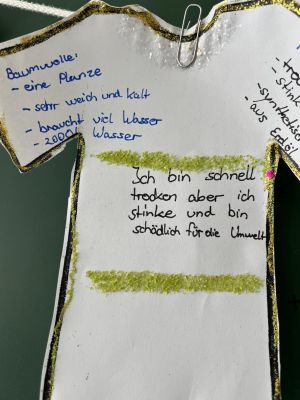 Baumwolle:
- eine Planze
- sehr weich und kalt
- braucht viel Wasser
- 2000L Wasser
- tro
- stin
- synthetisch
- aus Erdöl
Ich bin schnell
trocken aber ich
stinke und bin
schädlich für die Umwelt